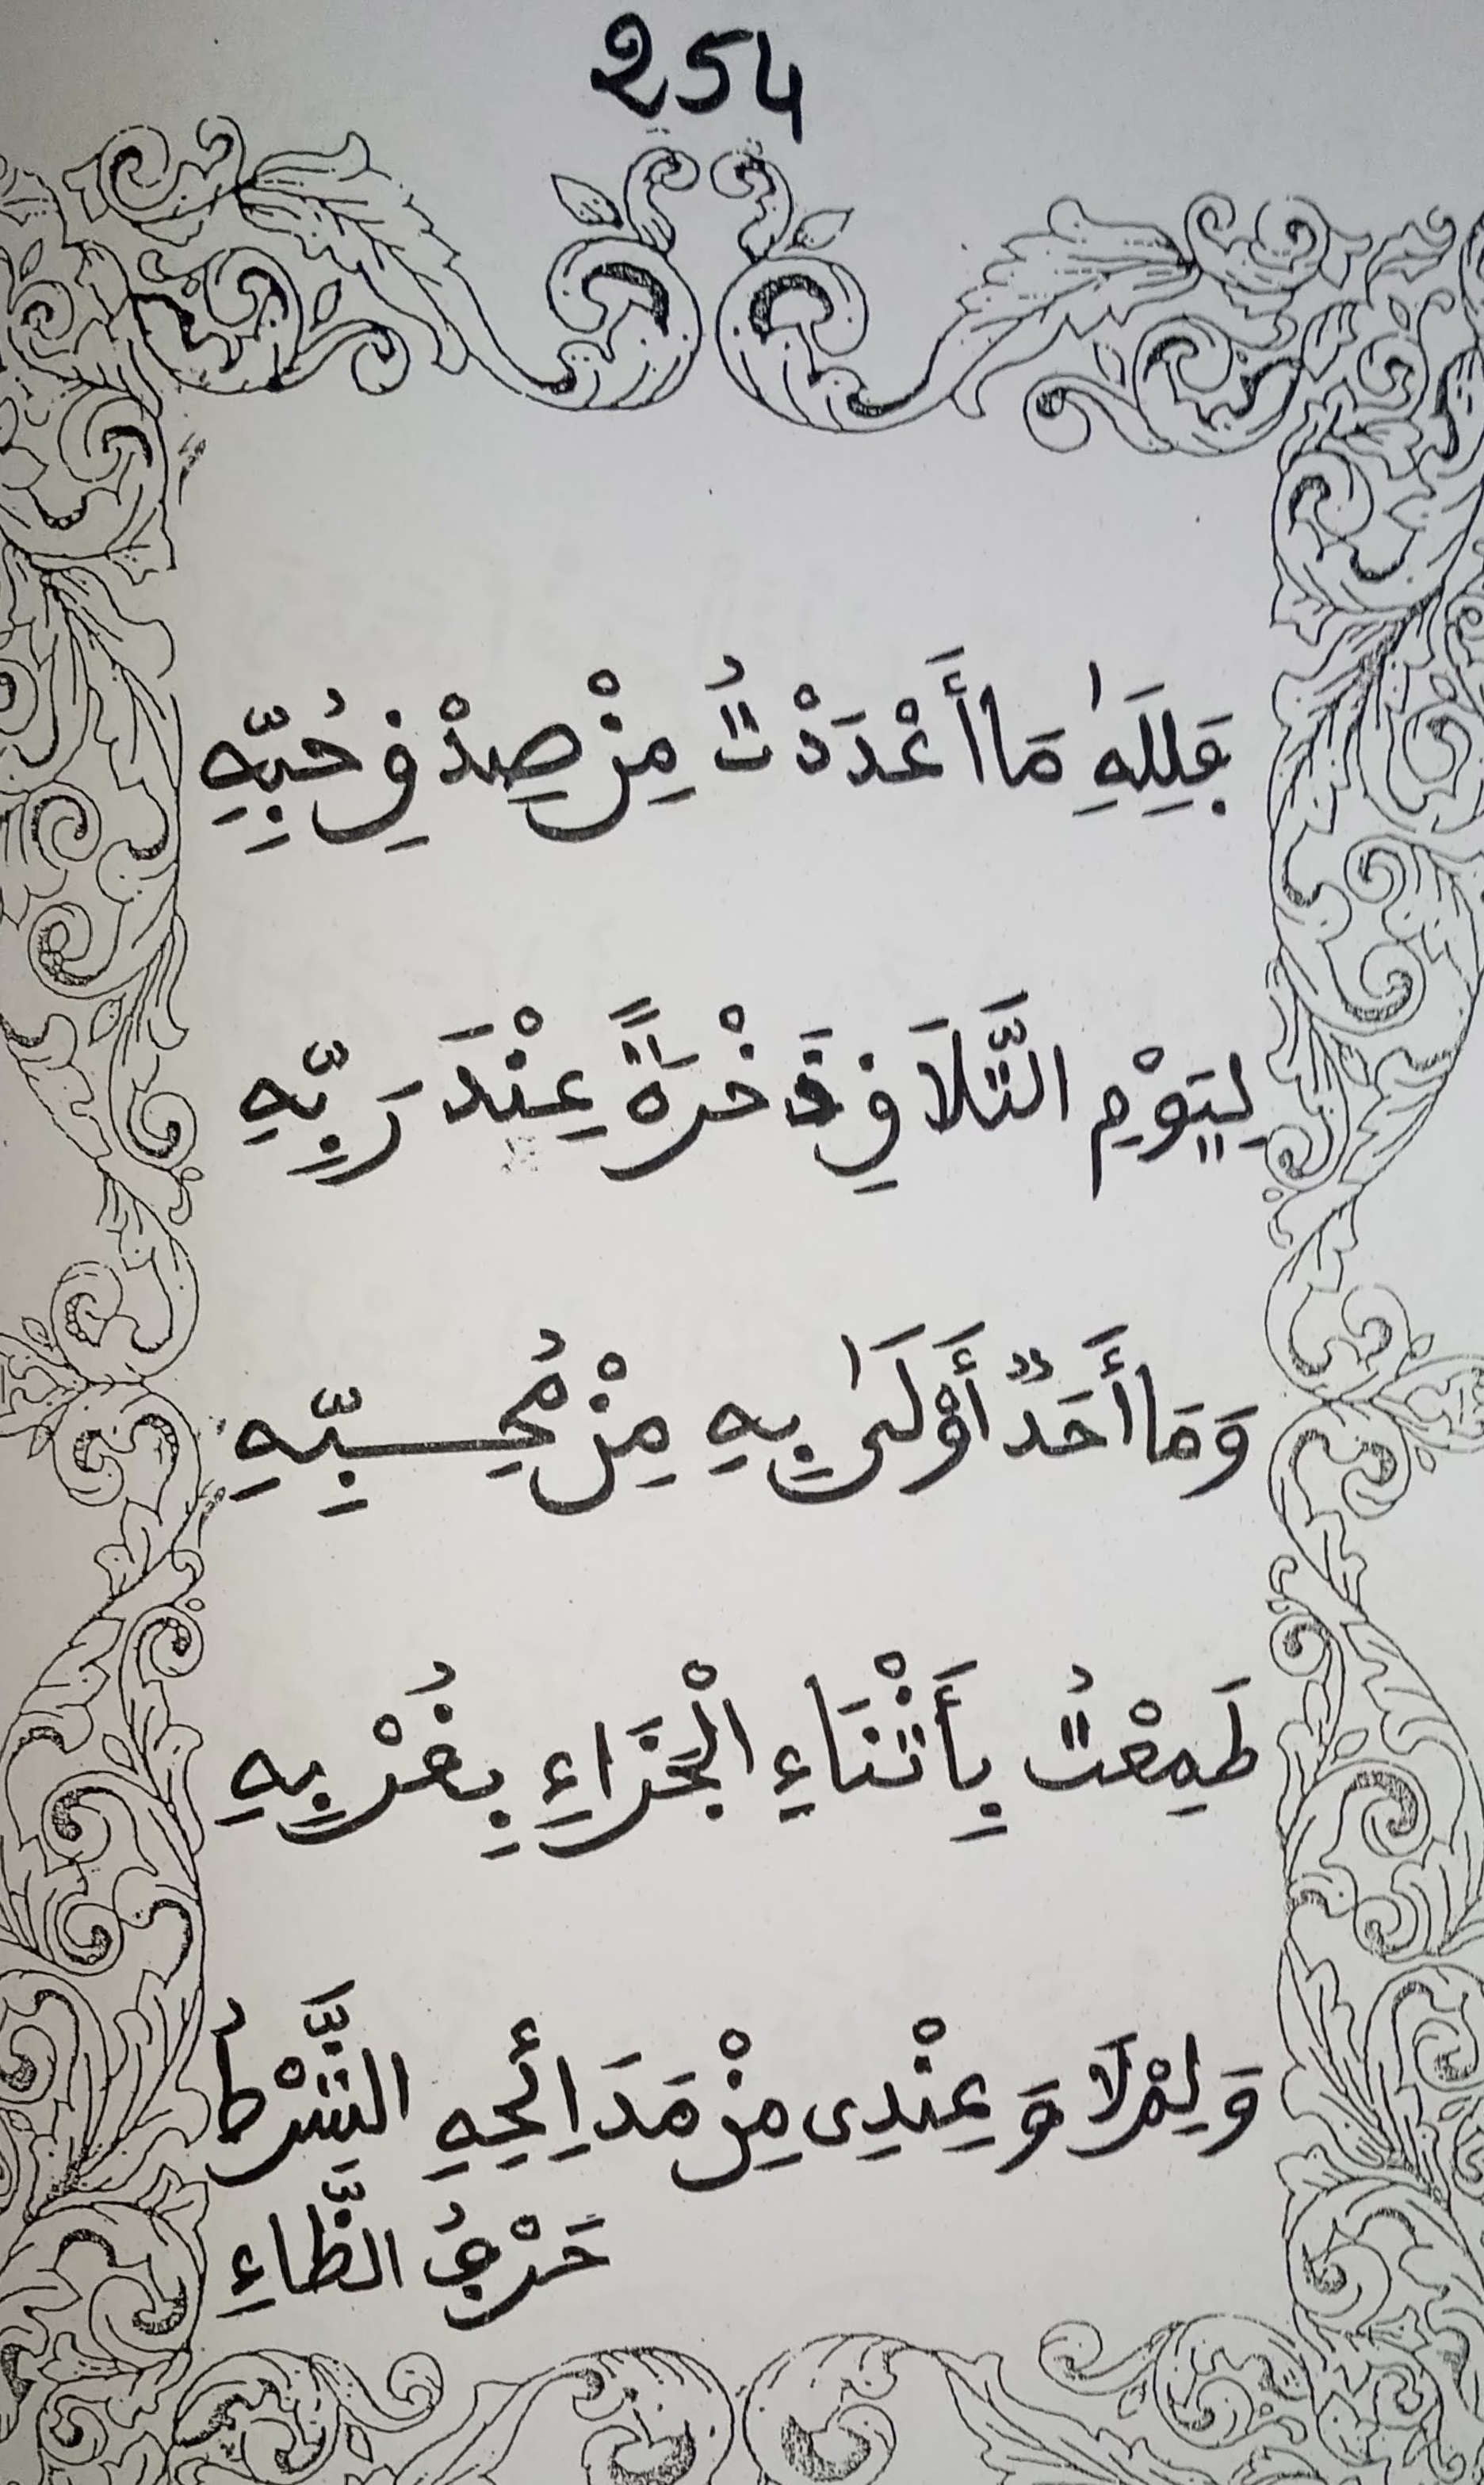 254
فَلِلَّهِ مَا أَعْدَدْتُ مِنْ صِدْقِ حُبِّهِ
لِيَوْمِ التَّلَاقِ ذَخْرَةً عِنْدَ رَبِّهِ
وَمَا أَحَدٌ أَوْلَىٰ بِهِ مِنْ مُحِبِّهِ
طَمِعْتُ بِأَثْنَاءِ الْجَزَاءِ بِقُرْبِهِ
وَلِمْ لَا وَعِنْدِى مِنْ مَدَائِحِهِ الشَّرْطُ
حَرْفُ الظَّاءِ